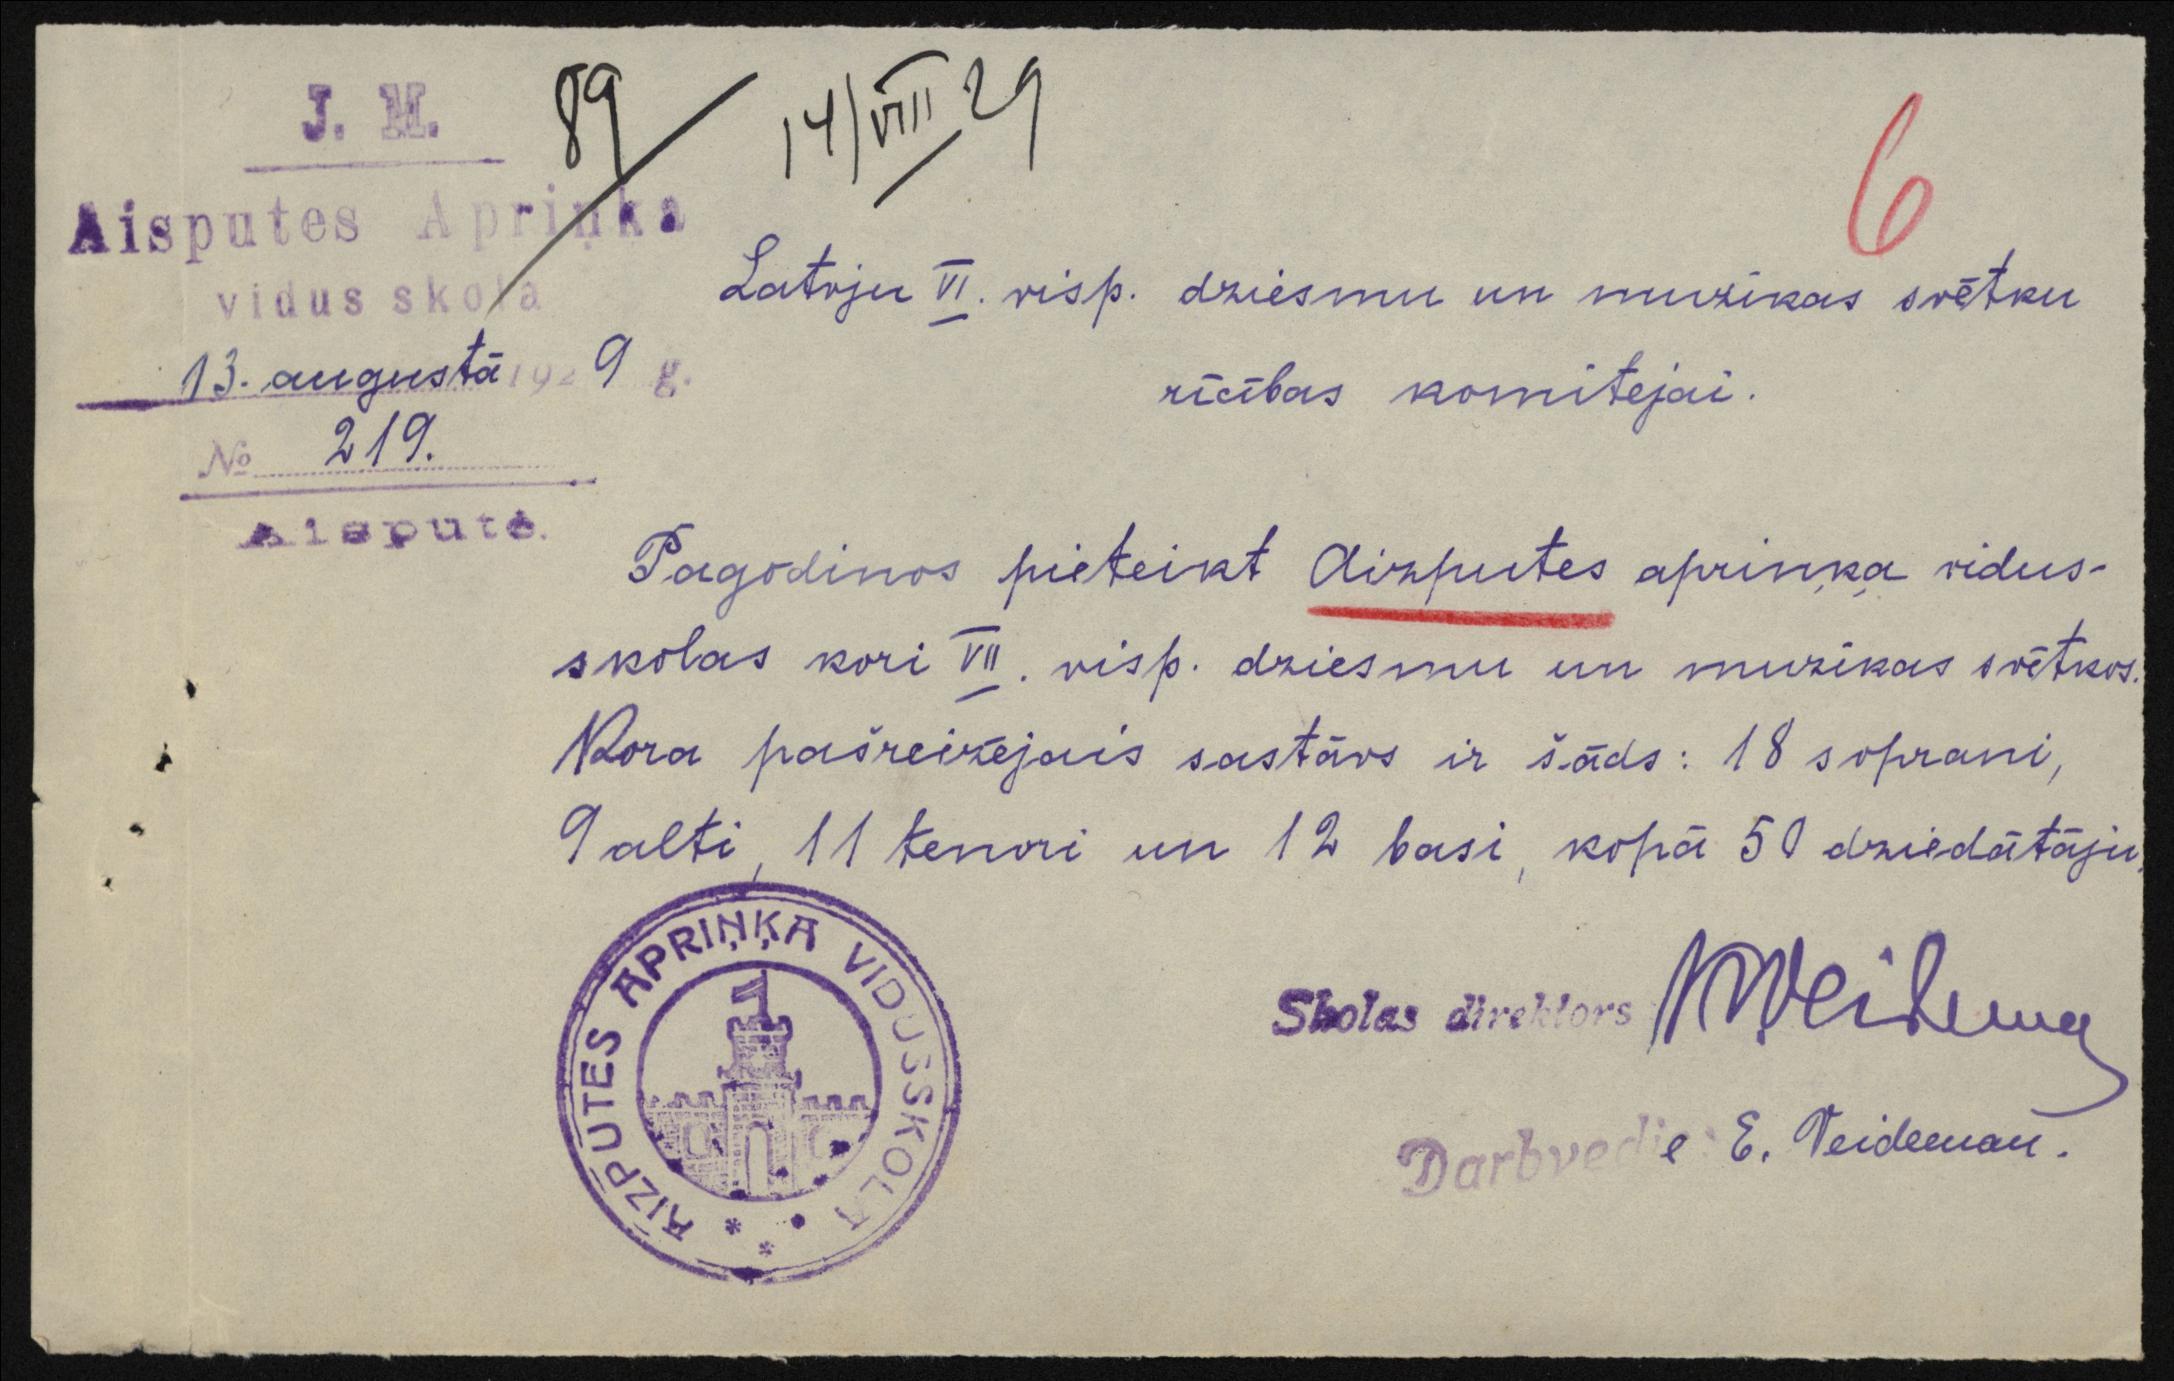 J. M.
Aisputes Apriņka
vidus skola
13. augustā 1929 g.
№ 219.
Aisputē.
89
14/VIII 29
6
Latvju VI. visp. dziesmu un muzikas svētku
rīcības komitejai.
Pagodinos pieteikt Aizputes apriņķa vidus-
skolas kori VII. visp. dziesmu un muzikas svētkos.
Kora pašreizējais sastāvs ir šāds: 18 soprani,
9 alti, 11 tenori un 12 basi, kopā 50 dziedātāju.
AIZPUTES APRIŅĶA VIDUSSKOLA
Skolas direktors
Darbvede E. Veideman.